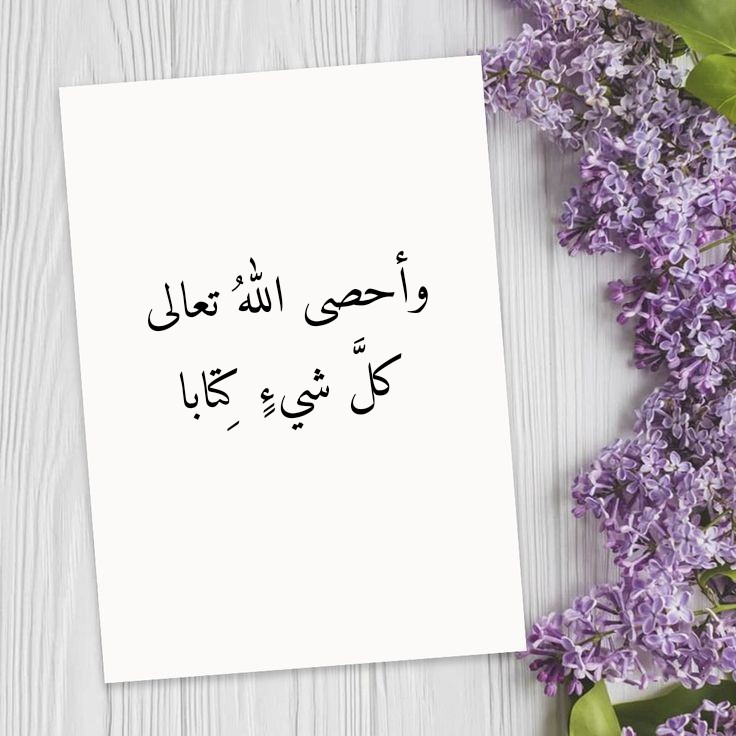 وأحصى اللهُ تعالى
كلَّ شيءٍ كِتابا